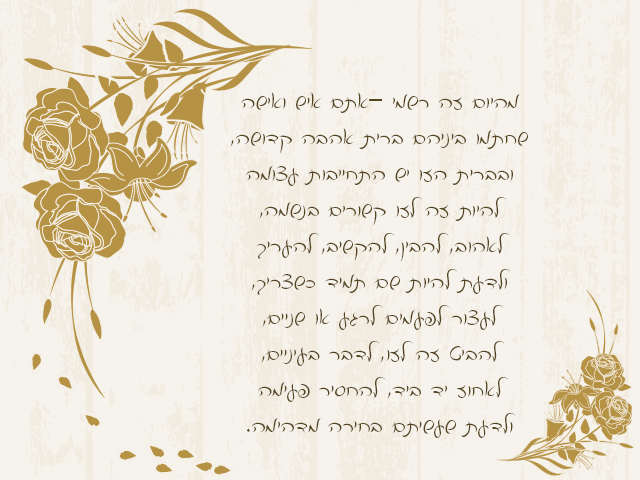 מהיום זה רשמי –אתם איש ואישה
שחתמו ביניהם ברית אהבה קדושה,
ובברית הזו יש התחייבות עצומה
להיות זה לזו קשורים בנשמה,
לאהוב, להבין, להקשיב, להעריך
ולדעת להיות שם תמיד כשצריך,
לעצור לפעמים לרגע או שניים,
להביט זה לזו, לדבר בעיניים,
לאחוז יד ביד, להחסיר פעימה
ולדעת שעשיתם בחירה מדהימה.